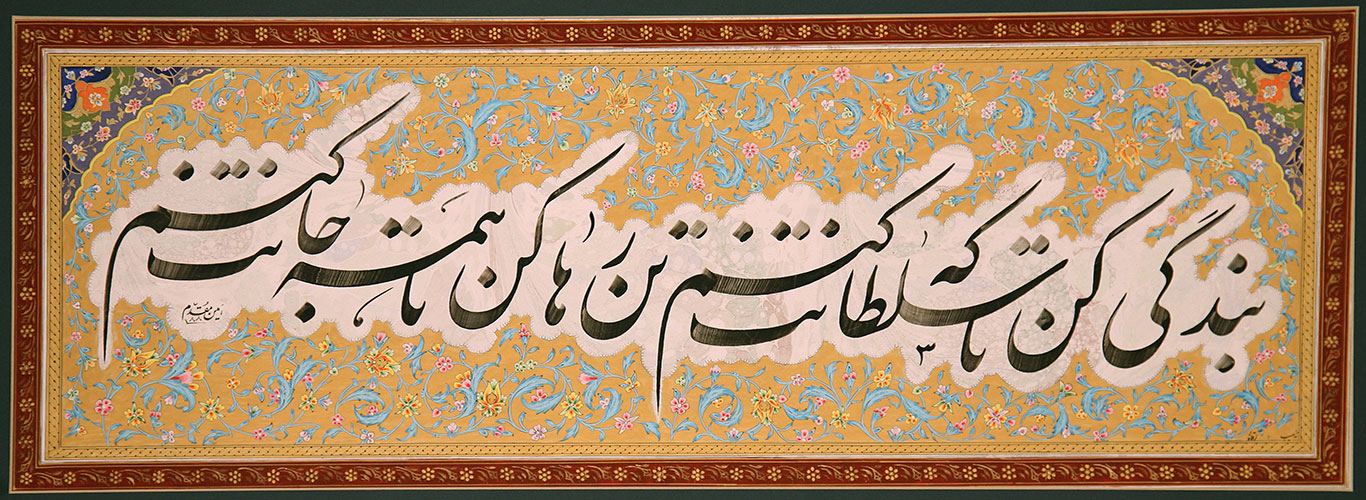 بندگی کن تا که سلطانت کنم تن رها کن تا همه جانت کنم
امین مقدم